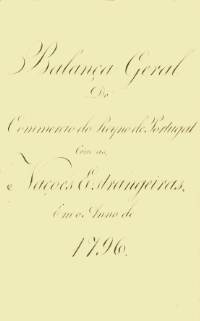 Balança Geral
Do
Commercio do Reyno de Portugal
Com as
Naçoes Estrangeiras,
Em o Anno de
1796.